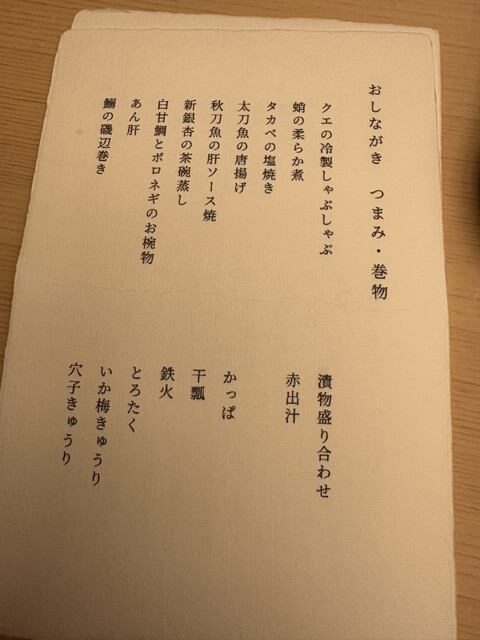 おしながき　つまみ・巻物
クエの冷製しゃぶしゃぶ
蛸の柔らか煮
タカベの塩焼き
太刀魚の唐揚げ
秋刀魚の肝ソース焼
新銀杏の茶碗蒸し
白甘鯛とポロネギのお椀物
あん肝
鰯の磯辺巻き
漬物盛り合わせ
赤出汁
かっぱ
干瓢
鉄火
とろたく
いか梅きゅうり
穴子きゅうり